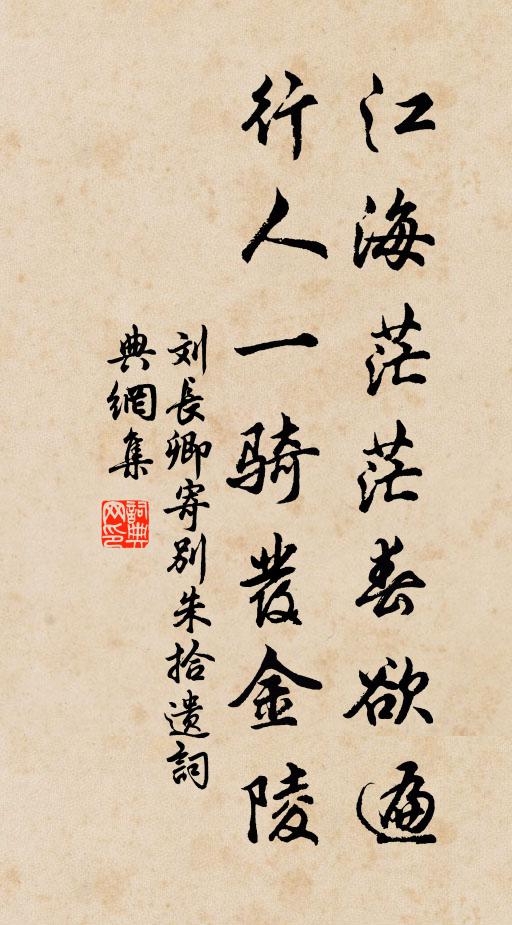 江海茫茫春欲遍
行人一骑發金陵
刘長卿寄别朱拾遺詞
典網集
詞典网印